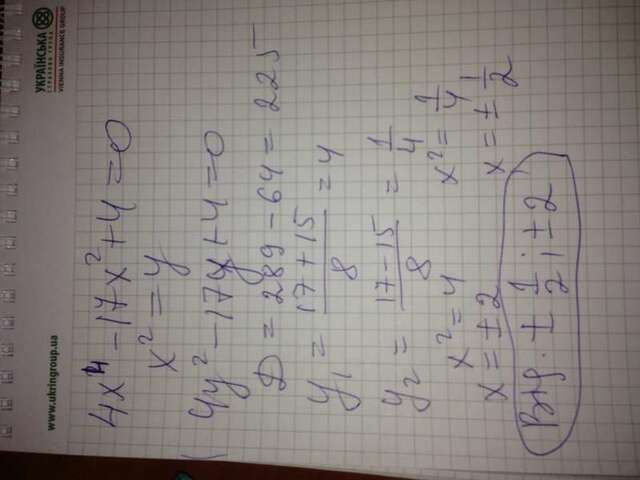 УКРАЇНСЬКА
СТРАХОВА ГРУПА
VIENNA INSURANCE GROUP
www.ukringroup.ua
4x⁴ - 17x² + 4 = 0
x² = y
4y² - 17y + 4 = 0
D = 289 - 64 = 225
y₁ = (17 + 15)/8 = 4
y₂ = (17 - 15)/8 = 1/4
x² = 4 x² = 1/4
x = ±2 x = ±1/2
Відp. ± 1/2; ±2